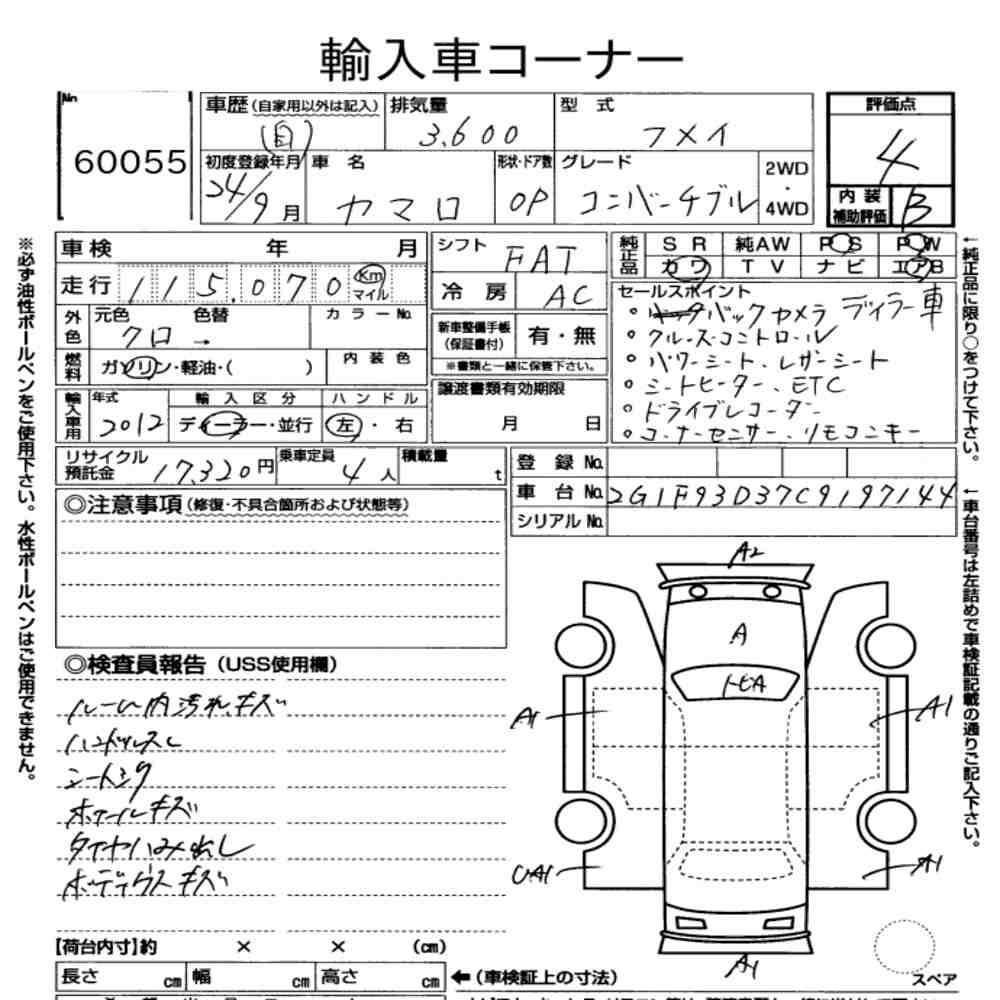 輸入車コーナー
No. 60055
車歴(自家用以外は記入) 自
排気量 3,600
型式 フメイ
評価点 4
内装補助評価 B
初度登録年月 24/9月
車名 カマロ
形状・ドア数 OP
グレード コンバーチブル
2WD・4WD
車検 年 月
走行 115.070 Km マイル
シフト FAT
冷房 AC
純正品 SR 純AW PS PW
カワ TV ナビ エアB
外色 元色 クロ → 色替 カラーNo.
燃料 ガソリン・軽油・( )
内装色
新車整備手帳(保証書付) 有・無
※書類と一緒に保管下さい。
セールスポイント
○バックカメラ ディラー車
○クルーズコントロール
○パワーシート、レザーシート
○シートヒーター、ETC
○ドライブレコーダー
○コーナーセンサー、リモコンキー
輸入車用 年式 2012
輸入区分 ディーラー・並行
ハンドル 左・右
譲渡書類有効期限 月 日
リサイクル預託金 17,320円
乗車定員 4人
積載量 t
登録No.
車台No. 2G1F93D37C9197144
シリアルNo.
◎注意事項(修復・不具合箇所および状態等)
◎検査員報告(USS使用欄)
ルーム内汚れ、キズ
ハンドルスレ
シートシワ
ホイールキズ
タイヤハミ出し
ボディガラスキズ
A2
A
トビA
A1
A1
UA1
A1
A1
スペア
【荷台内寸】約 × × (cm)
長さ cm 幅 cm 高さ cm
←(車検証上の寸法)
※必ず油性ボールペンをご使用下さい。水性ボールペンはご使用できません。
←純正品に限り○をつけて下さい。
←車台番号は左詰めで車検証記載の通りご記入下さい。